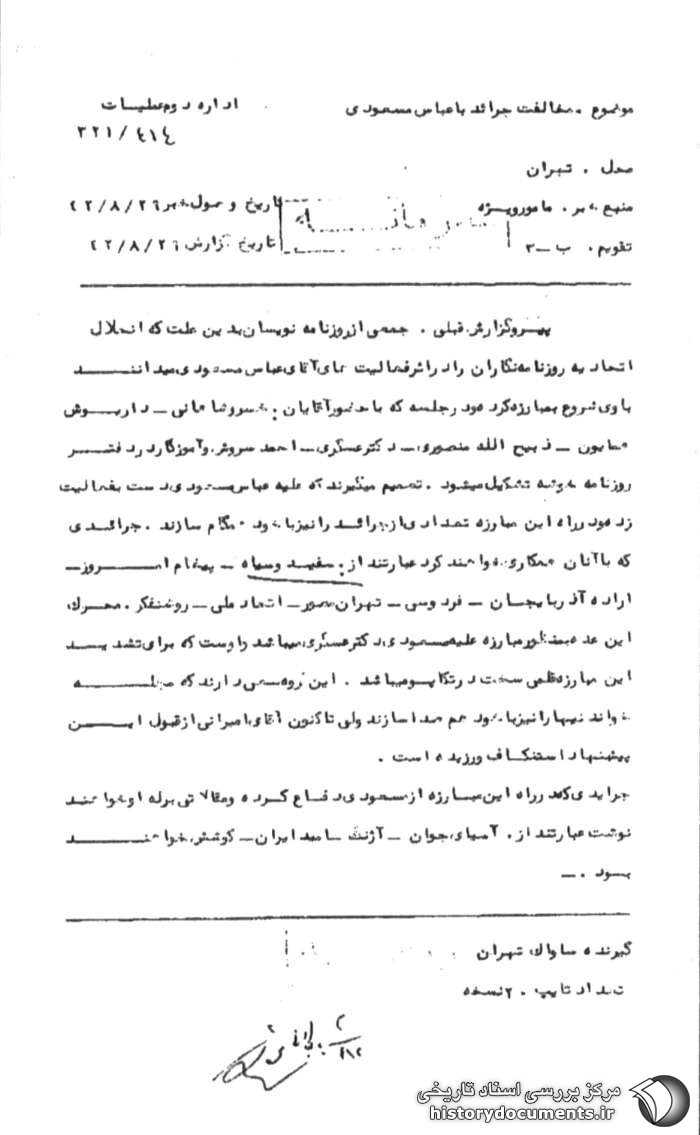 موضوع . مخالفت جرائد با عباس مسعودی
اداره دوم عملیات
۳۲۱/٤۱٤
محل . تهران
منبع خبر . مامور ویژه
تاریخ وصول خبر ۲٦/۸/٤۲
تقویم . ب-۳
تاریخ گزارش ۲٦/۸/٤۲
پیرو گزارش قبلی . جمعی از روزنامه نویسان بدین علت که انحلال
اتحادیه روزنامه نگاران را در اثر فعالیت های آقای عباس مسعودی میدانند
با وی شروع بمبارزه کرده و در جلسه که با حضور آقایان : خسروشاهانی - داریوش
همایون - ذبیح الله منصوری - دکتر عسگری - احمد سروش و آموزگار در دفتر
روزنامه خوشه تشکیل میشود . تصمیم میگیرند که علیه عباس مسعودی دست بفعالیت
زده و در راه این مبارزه تعدادی از جرائد را نیز با خود همگام سازند . جرائدی
که با آنان همکاری خواهند کرد عبارتند از : سفید و سیاه - پیغام امروز -
اراده آذربایجان - فردوسی - تهران مصور - اتحاد ملی - روشنفکر . محرک
این عده بمنظور مبارزه علیه مسعودی دکتر عسگری میباشد و اوست که برای تشدید
این مبارزه قلمی سخت در تکاپو میباشد . این گروه سعی دارند که مجله
خواندنیها را نیز با خود هم صدا سازند ولی تاکنون آقای امیرانی از قبول این
پیشنهاد استنکاف ورزیده است .
جرایدی که در راه این مبارزه از مسعودی دفاع کرده و مقالاتی برله او خواهند
نوشت عبارتند از . آسیای جوان - آژنگ - امید ایران - کوشش خواهند
بود . -
گیرنده ساواک تهران
تعداد تایپ . ۲ نسخه
مرکز بررسی اسناد تاریخی
historydocuments.ir